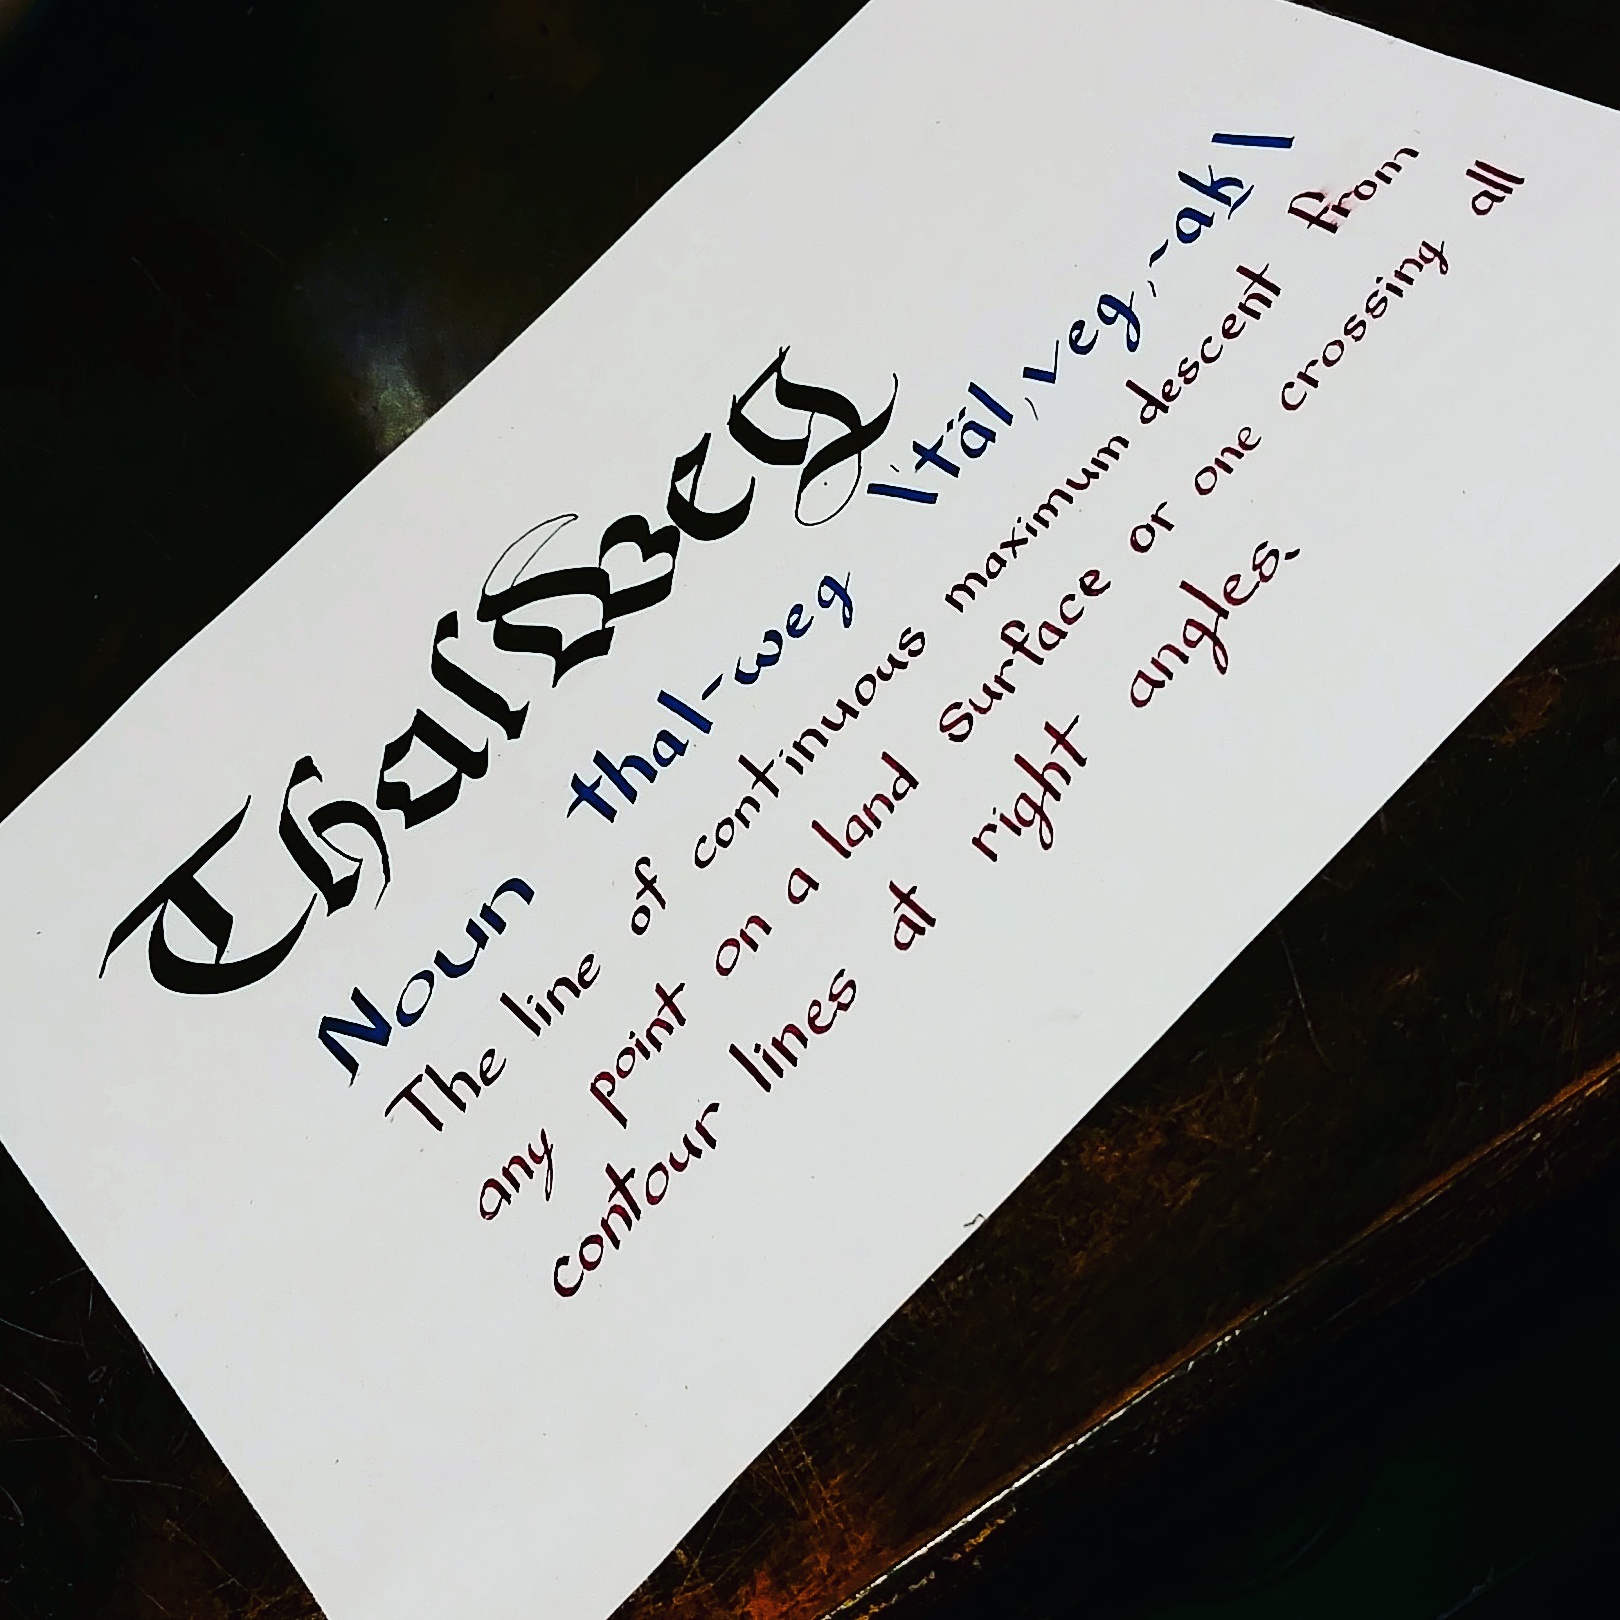 Thalweg
Noun thal-weg \ˈtäl,veg, -ak̲\
The line of continuous maximum descent from
any point on a land surface or one crossing all
contour lines at right angles.